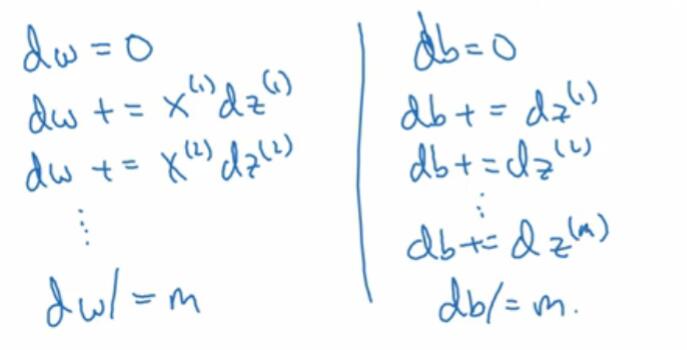 dw = 0
dw += x^(1) dz^(1)
dw += x^(2) dz^(2)
⋮
dw /= m
db = 0
db += dz^(1)
db += dz^(2)
⋮
db += dz^(m)
db /= m.